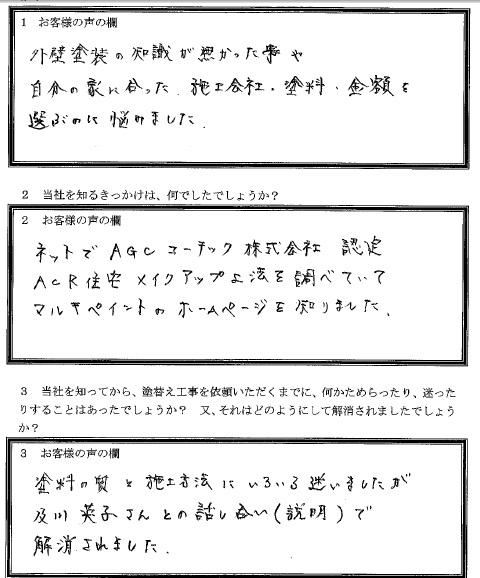 1 お客様の声の欄
外壁塗装の知識が無かった事や
自分の家に合った、施工会社・塗料・金額を
選ぶのに悩みました。
2 当社を知るきっかけは、何でしたでしょうか？
2 お客様の声の欄
ネットでAGCコーテック株式会社 認定
ACR住宅メイクアップ工法を調べていて
マルキペイントのホームページを知りました。
3 当社を知ってから、塗替え工事を依頼いただくまでに、何かためらったり、迷った
りすることはあったでしょうか？ 又、それはどのようにして解消されましたでしょう
か？
3 お客様の声の欄
塗料の質と施工方法にいろいろ迷いましたが
及川英子さんとの話し合い(説明)で
解消されました。